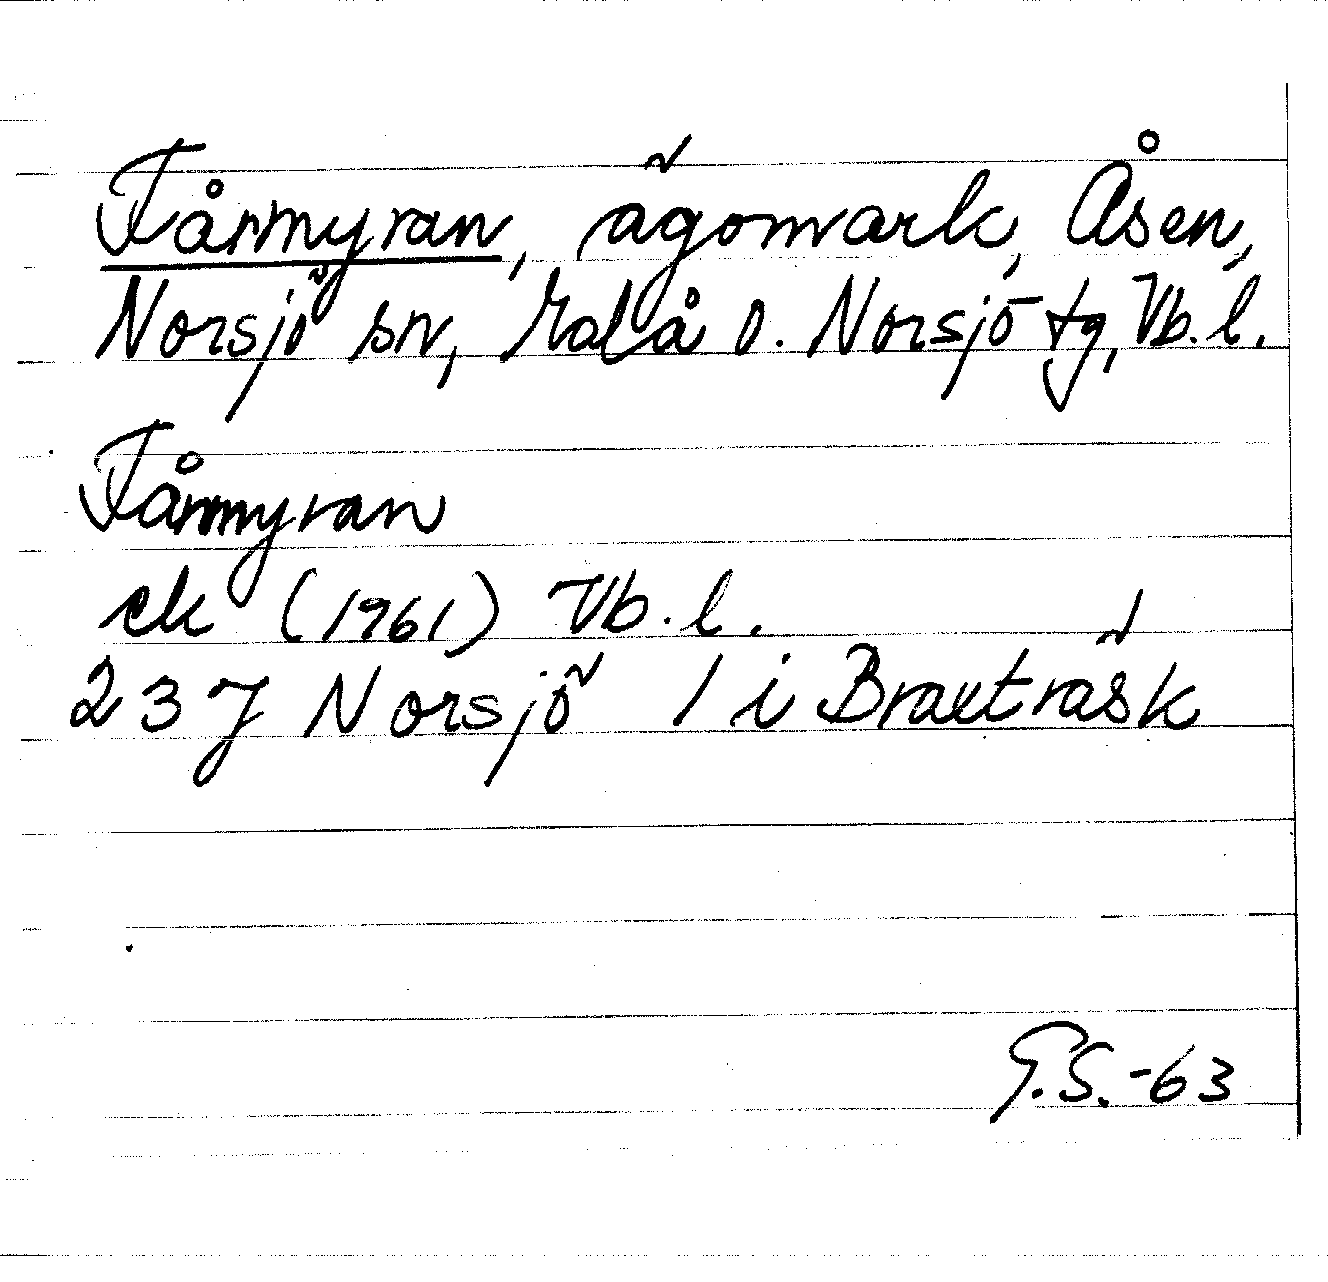 Fårmyran, ägomark, Åsen,
Norsjö sn, Malå o. Norsjö tg, Vb. l.
Fårmyran
ek (1961) Vb. l.
23 J Norsjö 1 i Braxträsk
G.S.-63